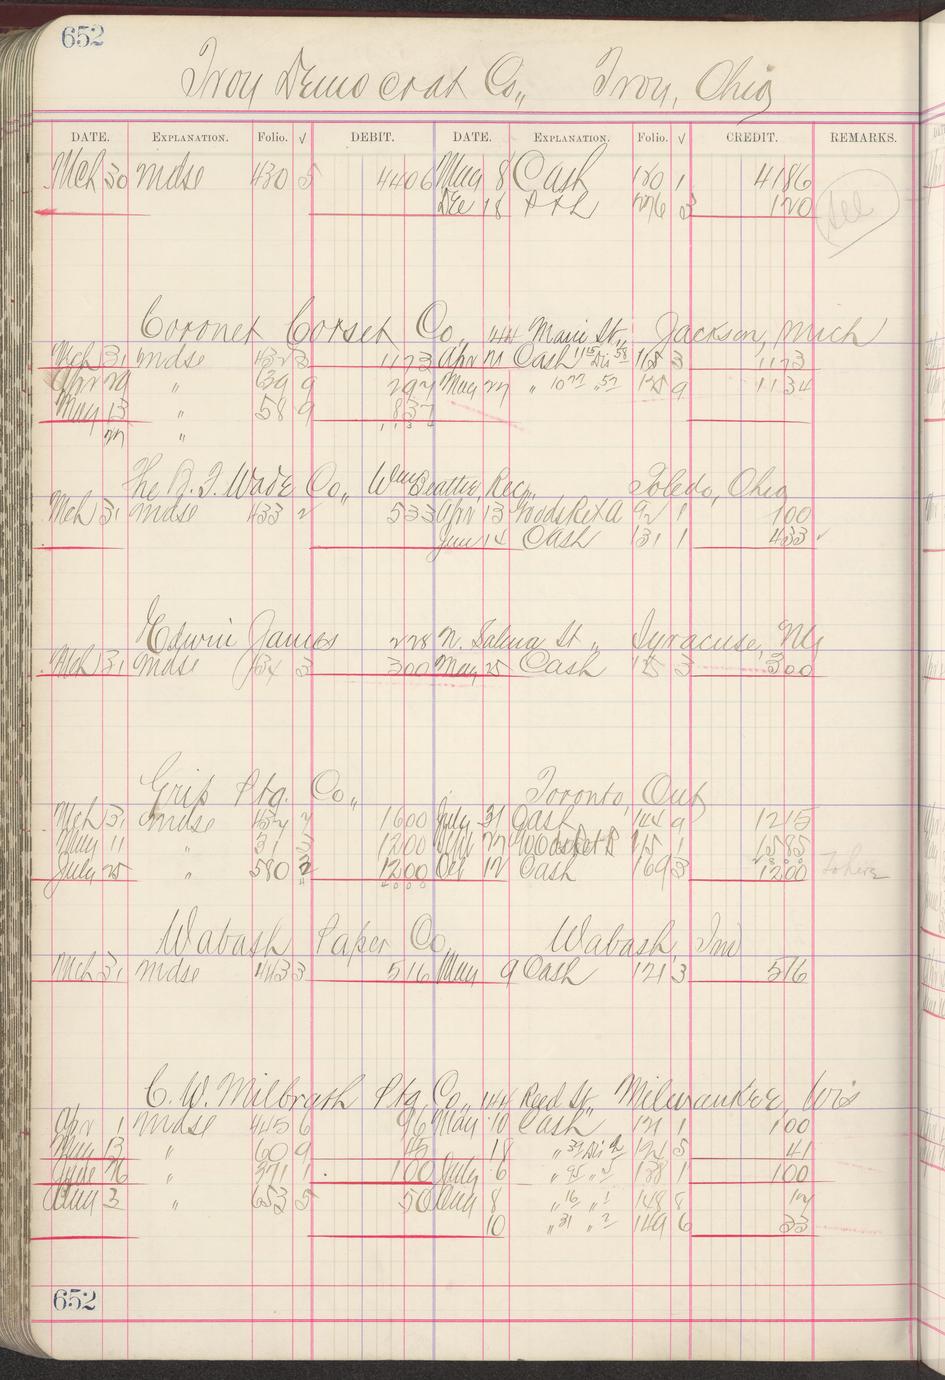 652
Troy Democrat Co., Troy, Ohio
DATE. EXPLANATION. Folio. √ DEBIT. DATE. EXPLANATION. Folio. √ CREDIT. REMARKS.
Mch 30 mdse 430 5 4406 May 8 Cash 120 1 4186
Dec 18 P & L 276 3 120
Coronet Corset Co., 144 Main St., Jackson, Mich
Mch 31 mdse 432 3 1173 Apr 21 Cash 11 15 Dis 58 115 3 1173
Apr 29 " 39 9 297 May 27 " 10 77 " 57 125 9 1134
May 13 " 58 9 837
27 " 1134
The B. F. Wade Co., Wm Beattie, Rec., Toledo, Ohio
Mch 31 mdse 433 2 533 Apr 13 Goods Ret A 92 1 100
June 14 Cash 131 1 433 ✓
Edwin James 228 N. Salina St., Syracuse, NY
Mch 31 mdse 434 3 300 May 25 Cash 125 3 300
Grip Ptg. Co., Toronto, Ont
Mch 31 mdse 437 7 1600 July 31 Cash 144 9 1215
May 11 " 51 3 1200 Sept 27 Goods Ret B 115 1 1585
July 25 " 580 2 1200 Oct 12 Cash 169 3 1200
4000
Wabash Paper Co., Wabash, Ind
Mch 31 mdse 443 3 516 May 9 Cash 121 3 516
C. W. Milbrath Ptg. Co., 144 Reed St., Milwaukee, Wis
Apr 1 mdse 445 6 96 May 10 Cash 121 1 100
May 13 " 60 9 45 18 " 39 Dis 2 124 5 41
June 26 " 371 1 100 July 6 " 95 " 5 138 1 100
Aug 3 " 653 5 50 Aug 8 " 16 " 1 148 8 17
10 " 31 " 2 149 6 33
652